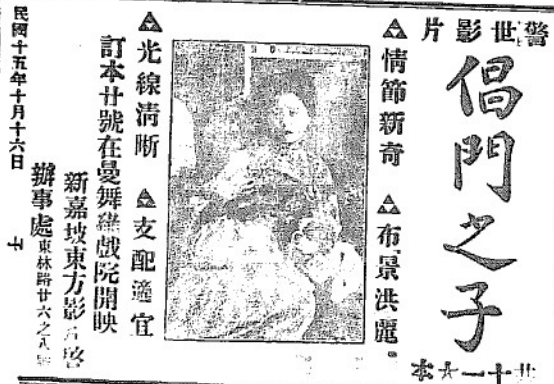 警世影片
倡門之子
共十一大本
▲情節新奇 ▲布景洪麗
▲光線清晰 ▲支配適宜
訂本廿號在曼舞羅戲院開映
新嘉坡東方影片啓
辦事處東林路廿六之八號
民國十五年十月十六日